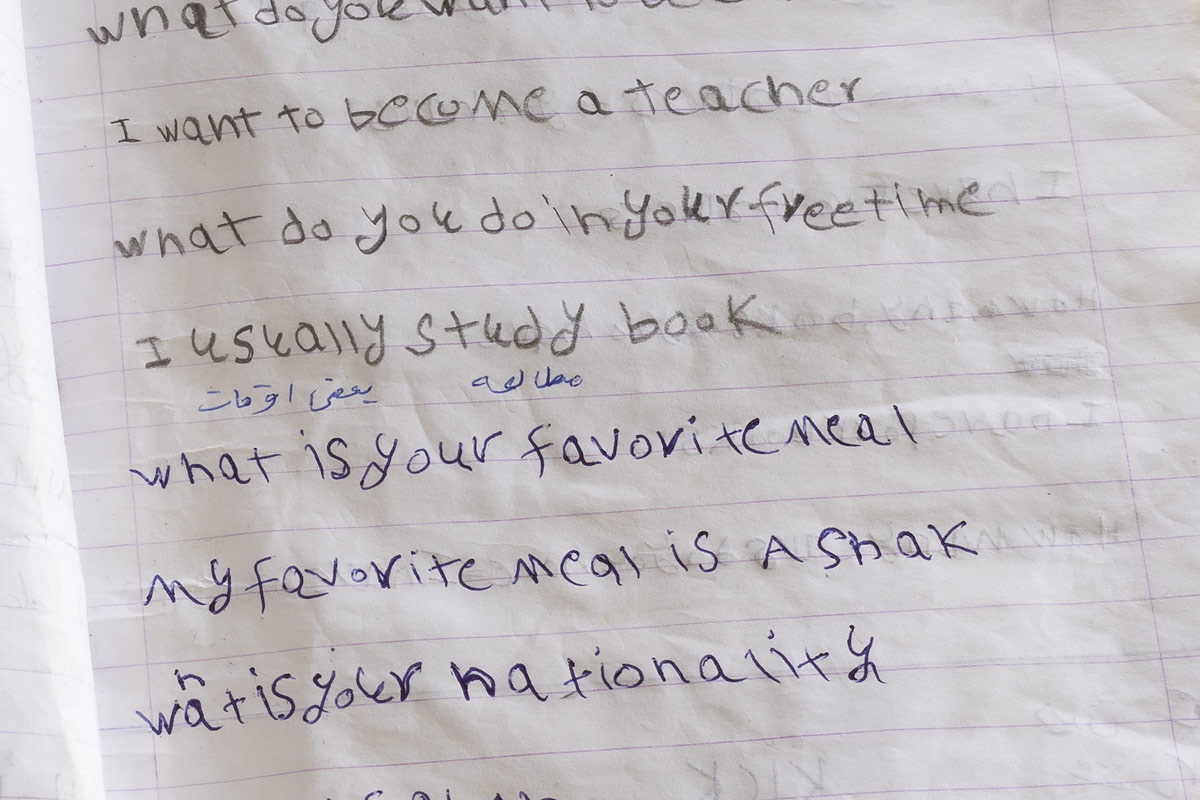 what do you want to
I want to become a teacher
what do you do in your free time
I usually study book
بعضی اوقات مطالعه
what is your favorite meal
my favorite meal is Ashak
what is your nationality